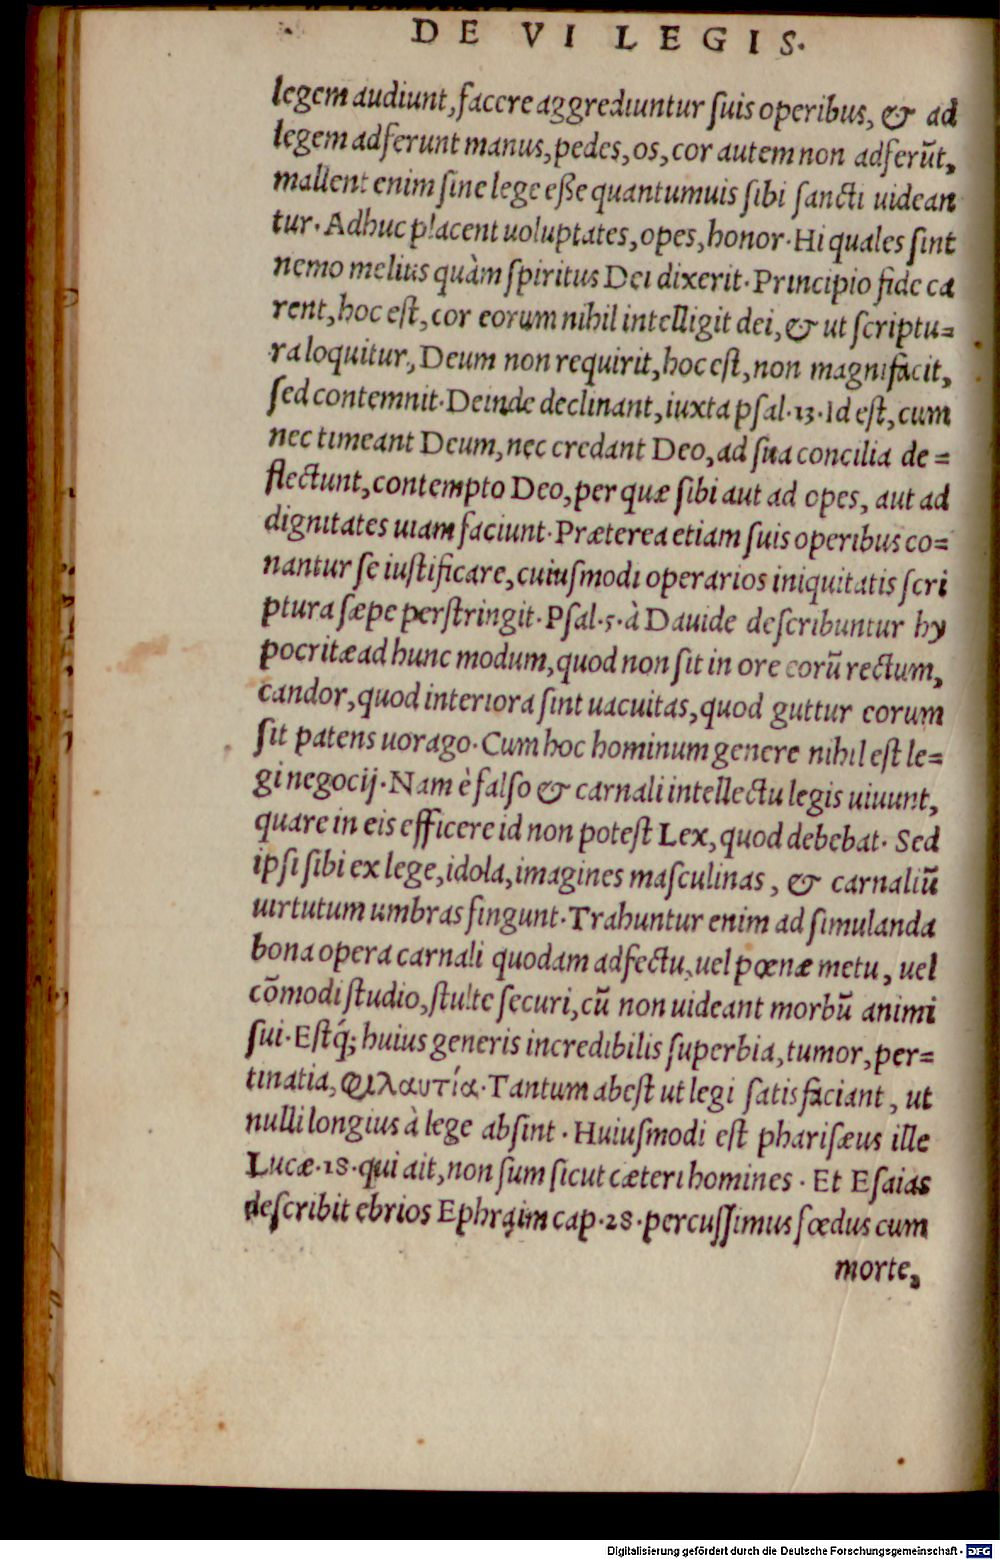 DE VI LEGIS.
legem audiunt, facere aggrediuntur suis operibus, & ad
legem adferunt manus, pedes, os, cor autem non adferūt,
mallent enim sine lege eße quantumuis sibi sancti uidean
tur. Adhuc placent uoluptates, opes, honor. Hi quales sint
nemo melius quàm spiritus Dei dixerit. Principio fide ca
rent, hoc est, cor eorum nihil intelligit dei, & ut scriptu=
ra loquitur, Deum non requirit, hoc est, non magnifacit,
sed contemnit. Deinde declinant, iuxta psal. 13. Id est, cum
nec timeant Deum, nec credant Deo, ad sua concilia de=
flectunt, contempto Deo, per quæ sibi aut ad opes, aut ad
dignitates uiam faciunt. Præterea etiam suis operibus co=
nantur se iustificare, cuiusmodi operarios iniquitatis scri
ptura sæpe perstringit. Psal. 5. à Dauide describuntur hy
pocritæ ad hunc modum, quod non sit in ore eorū rectum,
candor, quod interiora sint uacuitas, quod guttur eorum
sit patens uorago. Cum hoc hominum genere nihil est le=
gi negocij. Nam è falso & carnali intellectu legis uiuunt,
quare in eis efficere id non potest Lex, quod debebat. Sed
ipsi sibi ex lege, idola, imagines masculinas, & carnaliū
uirtutum umbras fingunt. Trahuntur enim ad simulanda
bona opera carnali quodam adfectu, uel pœnæ metu, uel
cōmodi studio, stulte securi, cū non uideant morbū animi
sui. Estq́; huius generis incredibilis superbia, tumor, per=
tinatia, φιλαυτία. Tantum abest ut legi satisfaciant, ut
nulli longius à lege absint. Huiusmodi est pharisæus ille
Lucæ. 18. qui ait, non sum sicut cæteri homines. Et Esaias
describit ebrios Ephraim cap. 28. percussimus fœdus cum
morte,
Digitalisierung gefördert durch die Deutsche Forschungsgemeinschaft - DFG